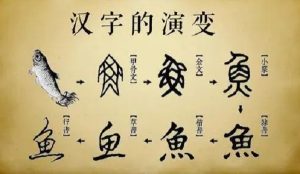 汉字的演变
【甲骨文】
【金文】
魚【小篆】
魚【隶书】
魚【楷书】
鱼【草书】
鱼【行书】